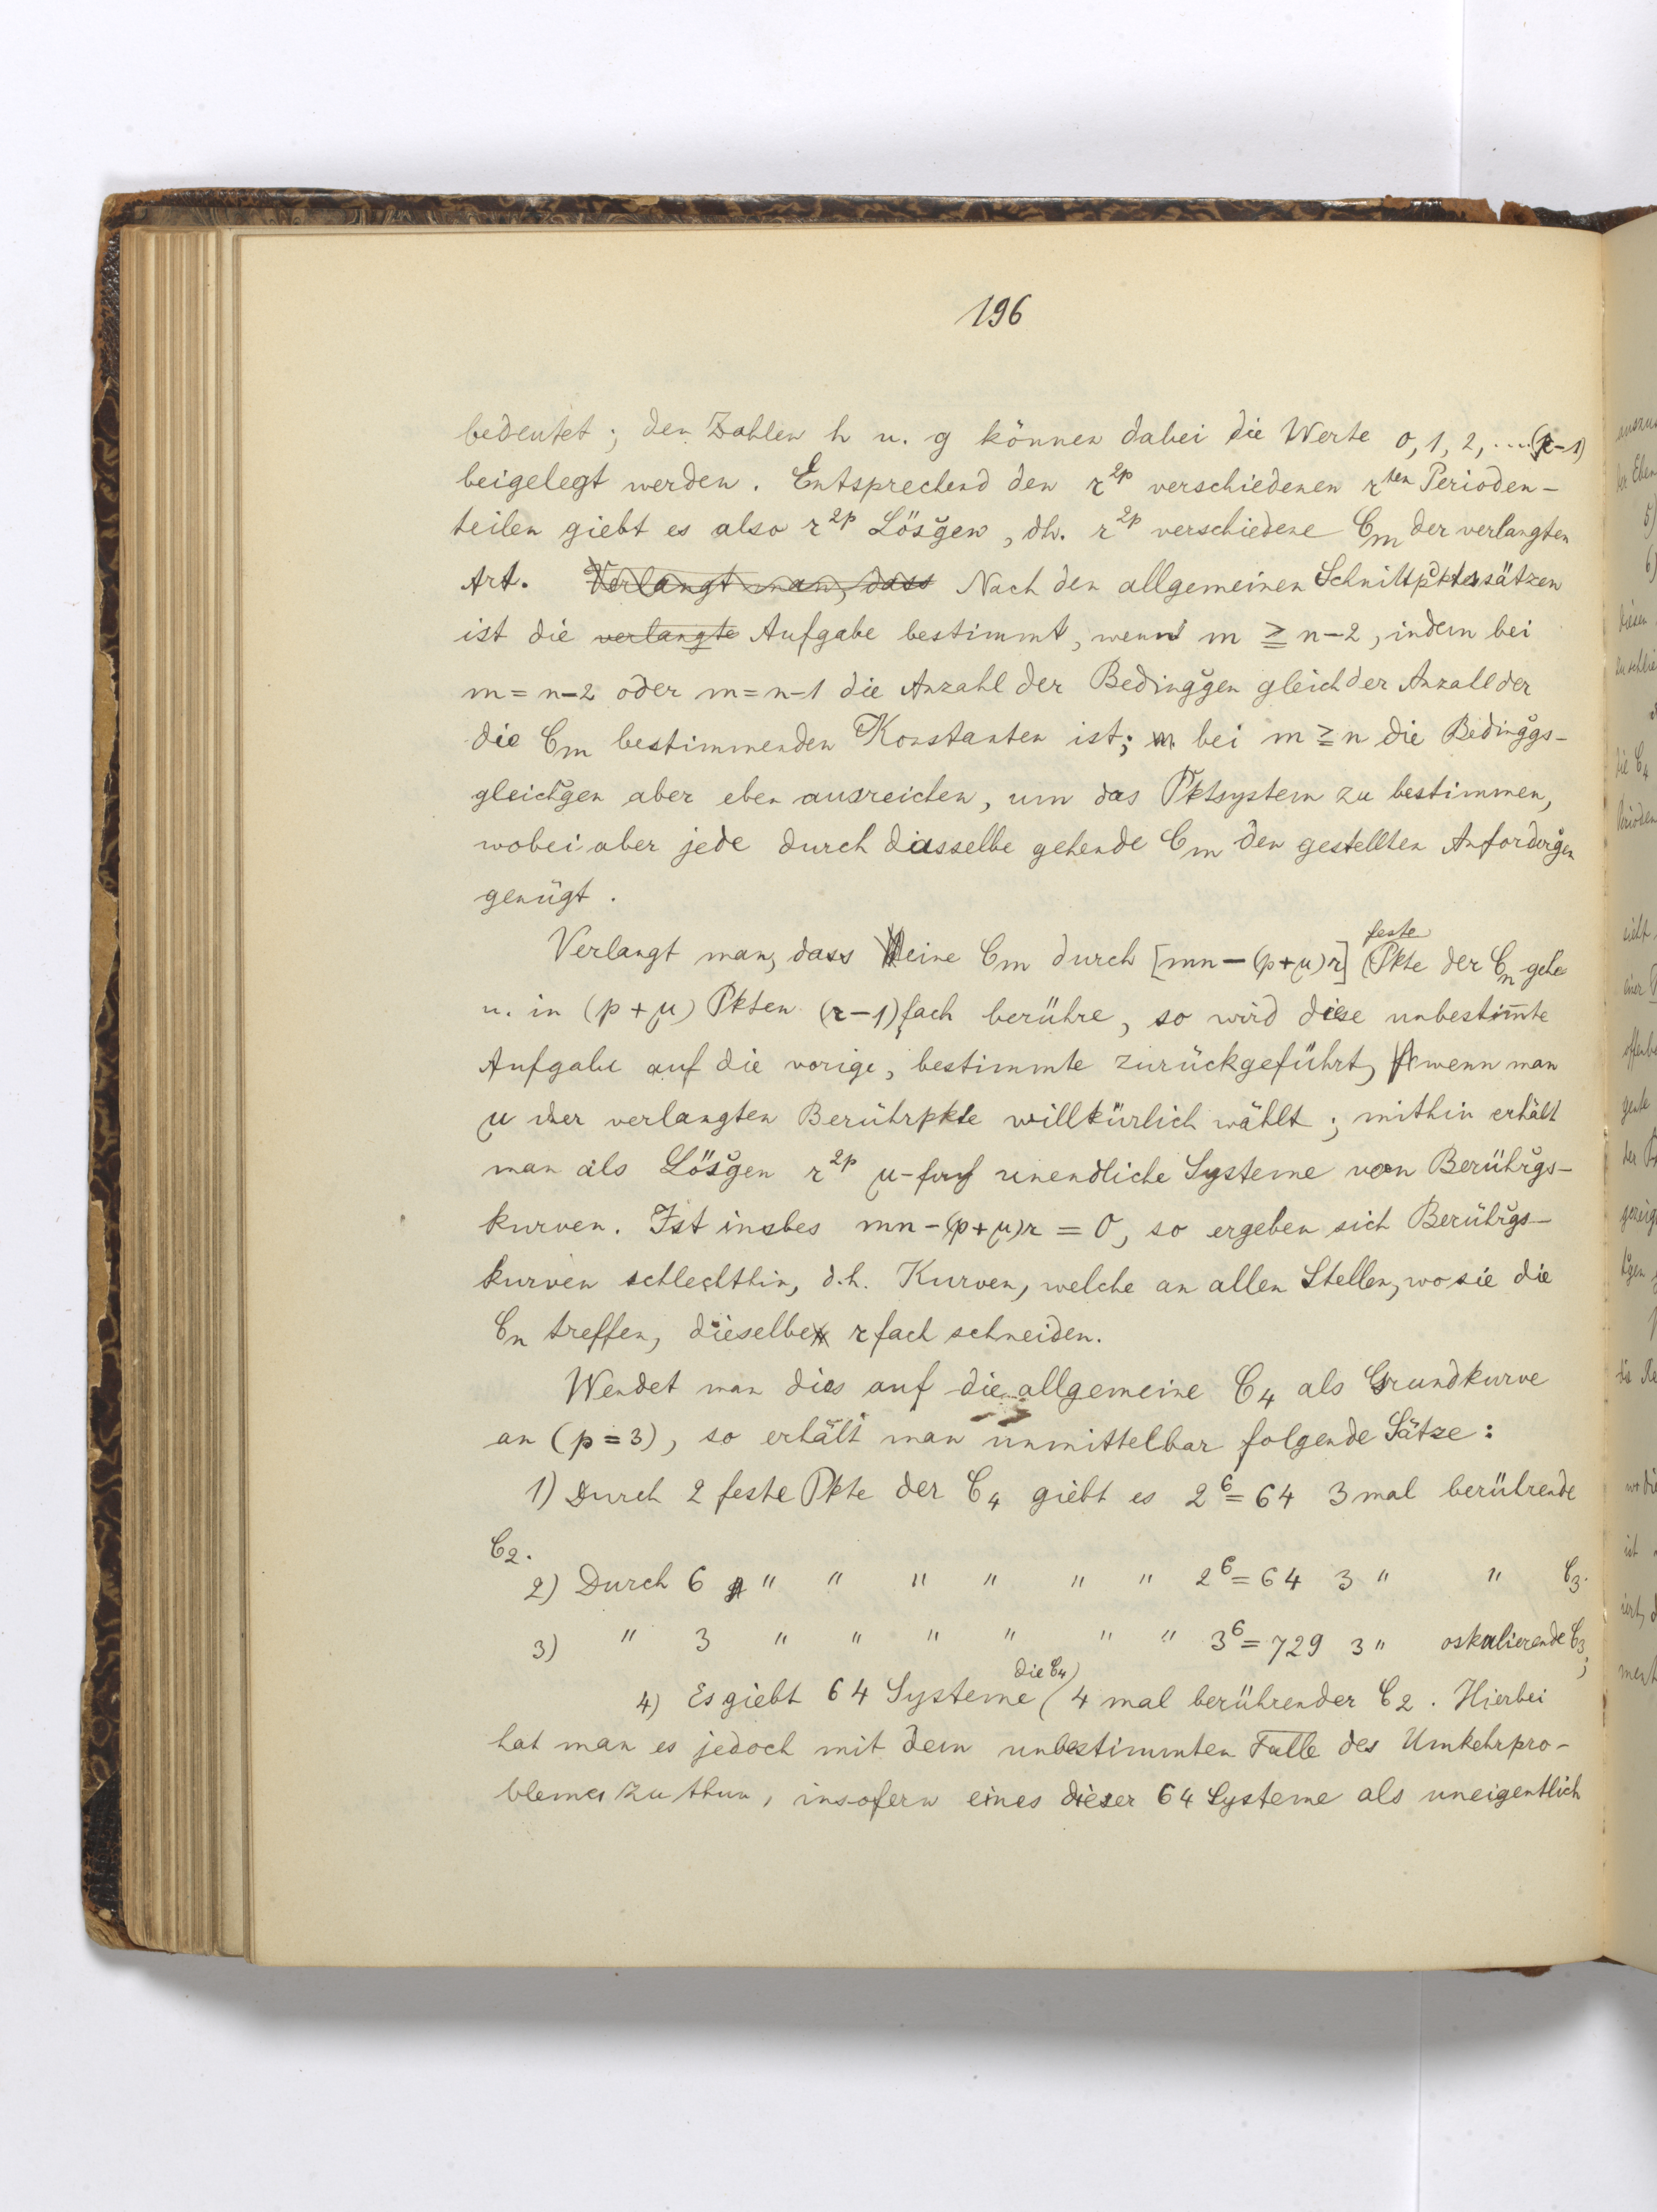 196
bedeutet; den Zahlen h u. g können dabei die Werte 0, 1, 2, ....(r-1)
beigelegt werden. Entsprechend den r^2p verschiedenen r^ten Perioden-
teilen giebt es also r^2p Lösgen, dh. r^2p verschiedene C_m der verlangten
Art. Verlangt man, dass Nach den allgemeinen Schnittpktssätzen
ist die verlangte Aufgabe bestimmt, wenn m ≧ n-2, indem bei
m = n-2 oder m = n-1 die Anzahl der Bedinggen gleich der Anzall der
die C_m bestimmenden Konstanten ist; bei m ≧ n die Bedinggs-
gleichgen aber eben ausreichen, um das Pktsystem zu bestimmen,
wobei aber jede durch dasselbe gehende C_m den gestellten Anfordergen
genügt.
Verlangt man, dass eine C_m durch [mn-(p+μ)r] feste Pkte der C_n gehe
u. in (p+μ) Pkten (r-1)fach berühre, so wird diese unbestim̅te
Aufgabe auf die vorige, bestimmte zurückgeführt, wenn man
μ der verlangten Berührpkte willkürlich wählt; mithin erhält
man als Lösgen r^2p μ-fach unendliche Systeme von Berührgs-
kurven. Ist insbes mn-(p+μ)r = 0, so ergeben sich Berührgs-
kurven schlechthin, d.h. Kurven, welche an allen Stellen, wo sie die
C_n treffen, dieselbe r fach schneiden.
Wendet man dies auf die allgemeine C_4 als Grundkurve
an (p=3), so erhält man unmittelbar folgende Sätze:
1) Durch 2 feste Pkte der C_4 giebt es 2^6 = 64 3 mal berührende
C_2.
2) Durch 6 " " " " " " 2^6 = 64 3 " " C_3.
3) " 3 " " " " " " 3^6 = 729 3 " oskulierende C_3;
4) Es giebt 64 Systeme die C_4 4 mal berührender C_2. Hierbei
hat man es jedoch mit dem unbestimmten Falle des Umkehrpro-
blemes zu thun, insofern eines dieser 64 Systeme als uneigentlich